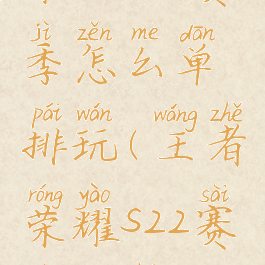 jì zěn me dān
季怎么单
pái wán wáng zhě
排玩(王者
róng yào sài
荣耀S22赛